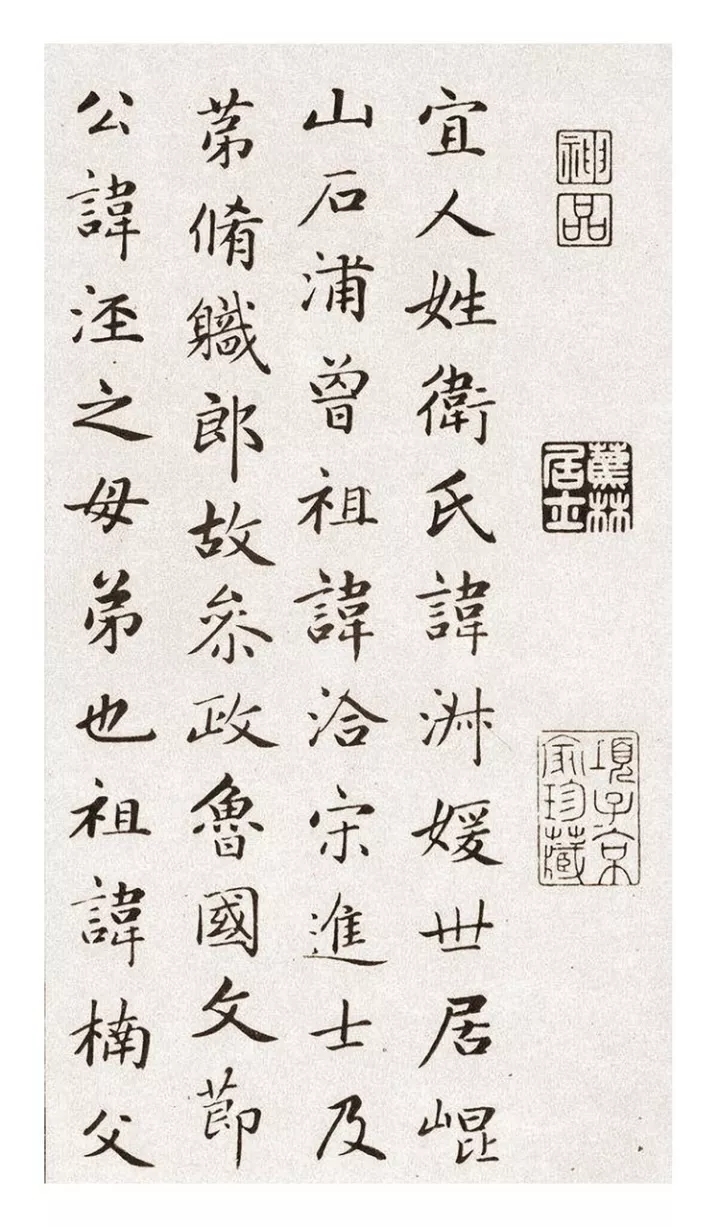 神品
蕉林居士
項子京家珍藏
宜人姓衛氏諱淑媛世居崐
山石浦曾祖諱洽宋進士及
苐脩軄郎故叅政魯國文莭
公諱涇之母弟也祖諱楠父